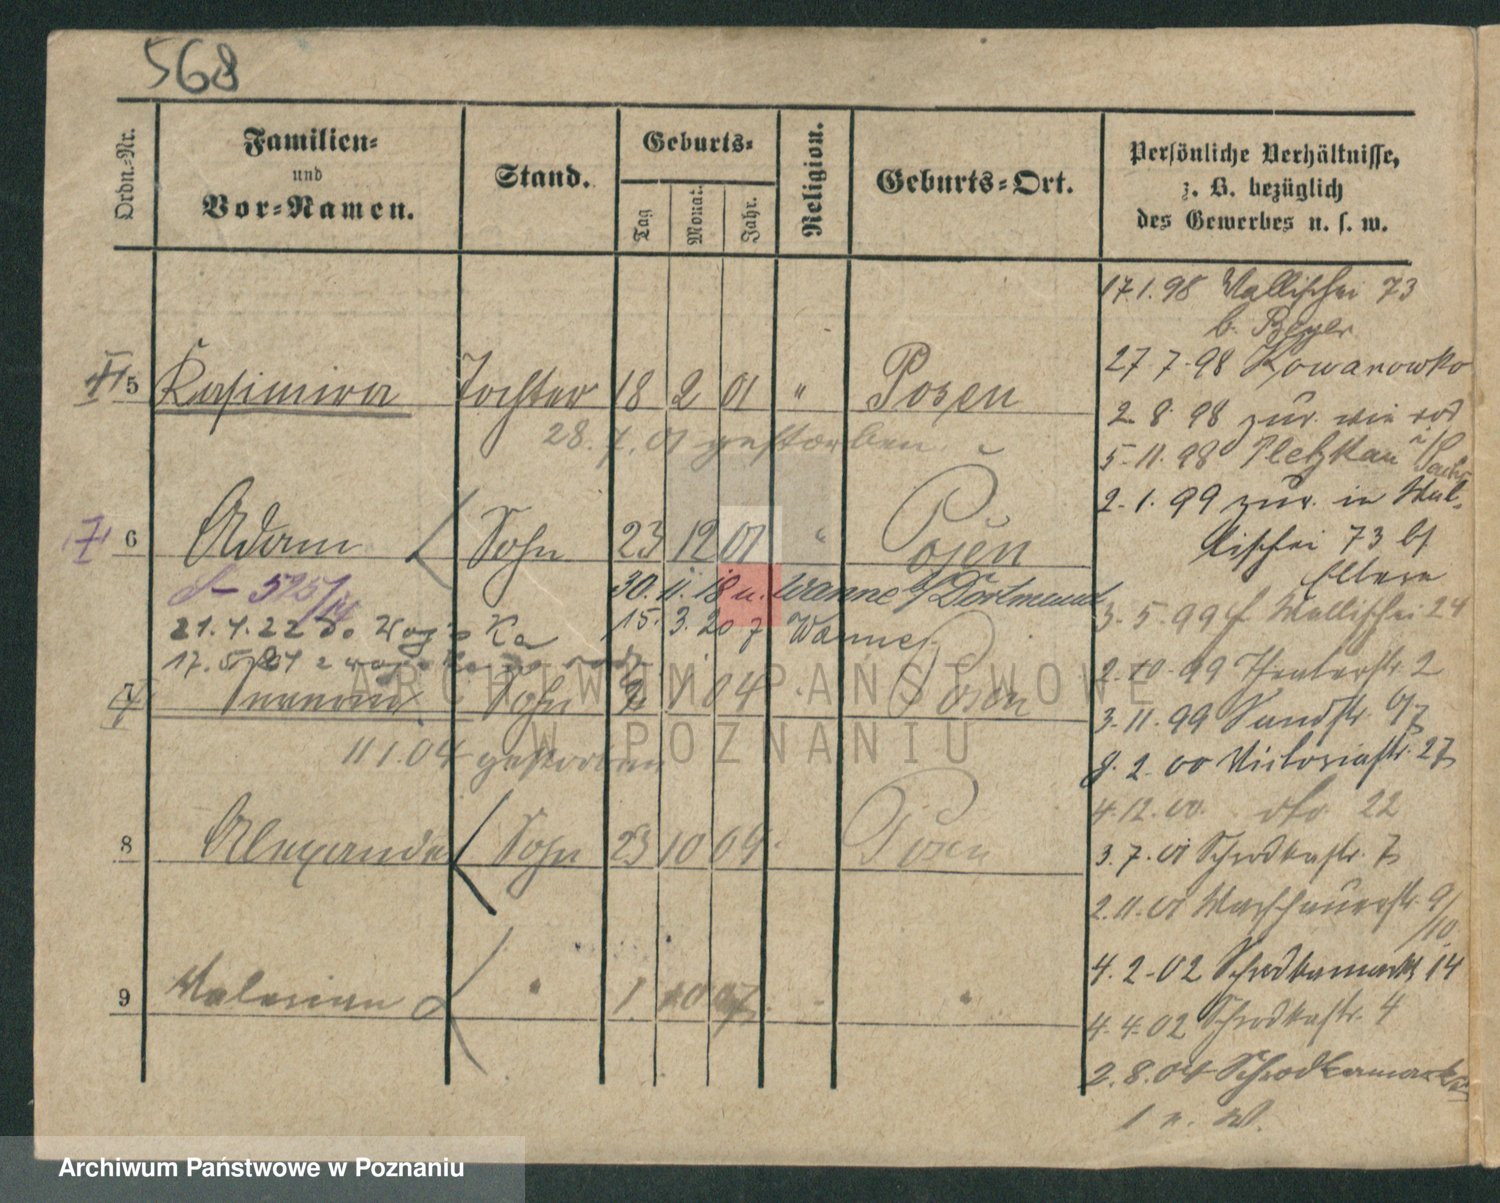 568
Ordn.-Nr.
Familien-
und
Vor-Namen.
Stand.
Geburts-
Tag
Monat.
Jahr.
Religion.
Geburts-Ort.
Persönliche Verhältnisse,
z. B. bezüglich
des Gewerbes u. s. w.
17.1.98 Wallischei 73
b. Beyer
5 Kasimira Tochter 18 2 01 " Posen
28.7.01 gestorben
27.7.98 Kowanowko
2.8.98 zur. wie
5.11.98 Pletzkau
2.1.99 zur. in Wal-
lischei 73 bei
Eltern
6 Adam Sohn 23 12 01 " Posen
30.11.18 u. Wanne b/ Dortmund
21.4.22 15.3.20 Wanne
17.5.
3.5.99 Wallischei 24
2.10.99 Theaterstr. 2
7 Sohn 2 1 04 Posen
11.1.04 gestorben
3.11.99 Sandstr.
8.2.00 Victoriastr. 27
4.12.00 dto 22
8 Alexander Sohn 23 10 04 Posen
3.7.01 Schrodkastr. 7
2.11.01 Warschauerstr. 9/10
4.2.02 Schrodkamarkt 14
9 Valerian " 1. 10 07 " "
4.4.02 Schrodkastr. 4
2.8.04 Schrodkamarkt
ARCHIWUM PAŃSTWOWE
W POZNANIU
Archiwum Państwowe w Poznaniu